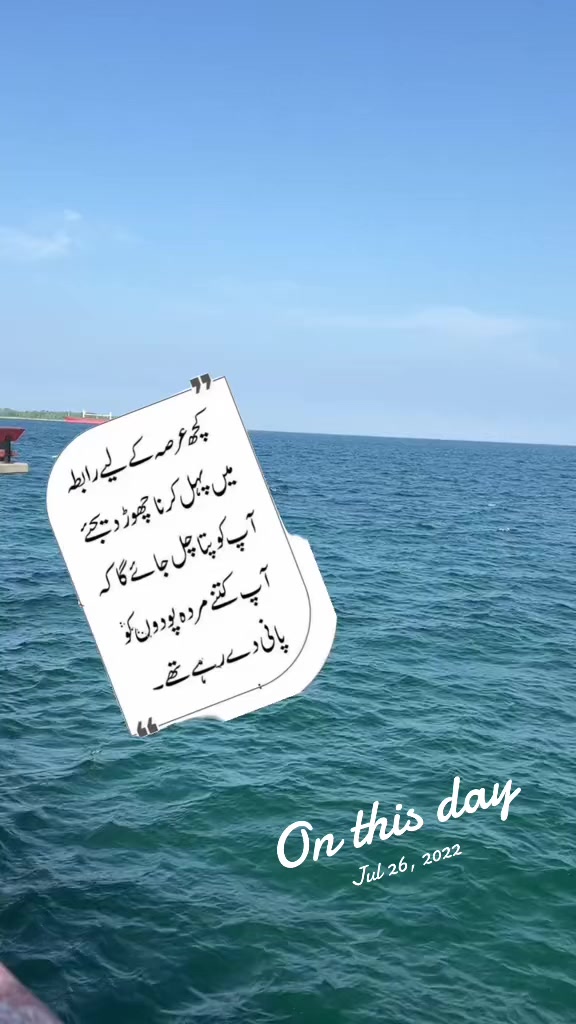 کچھ عرصہ کے لیے رابطہ
میں پہل کرنا چھوڑ دیجئے
آپ کو پتا چل جائے گا کہ
آپ کتنے مردہ پودوں کو
پانی دے رہے تھے۔
On this day
Jul 26, 2022